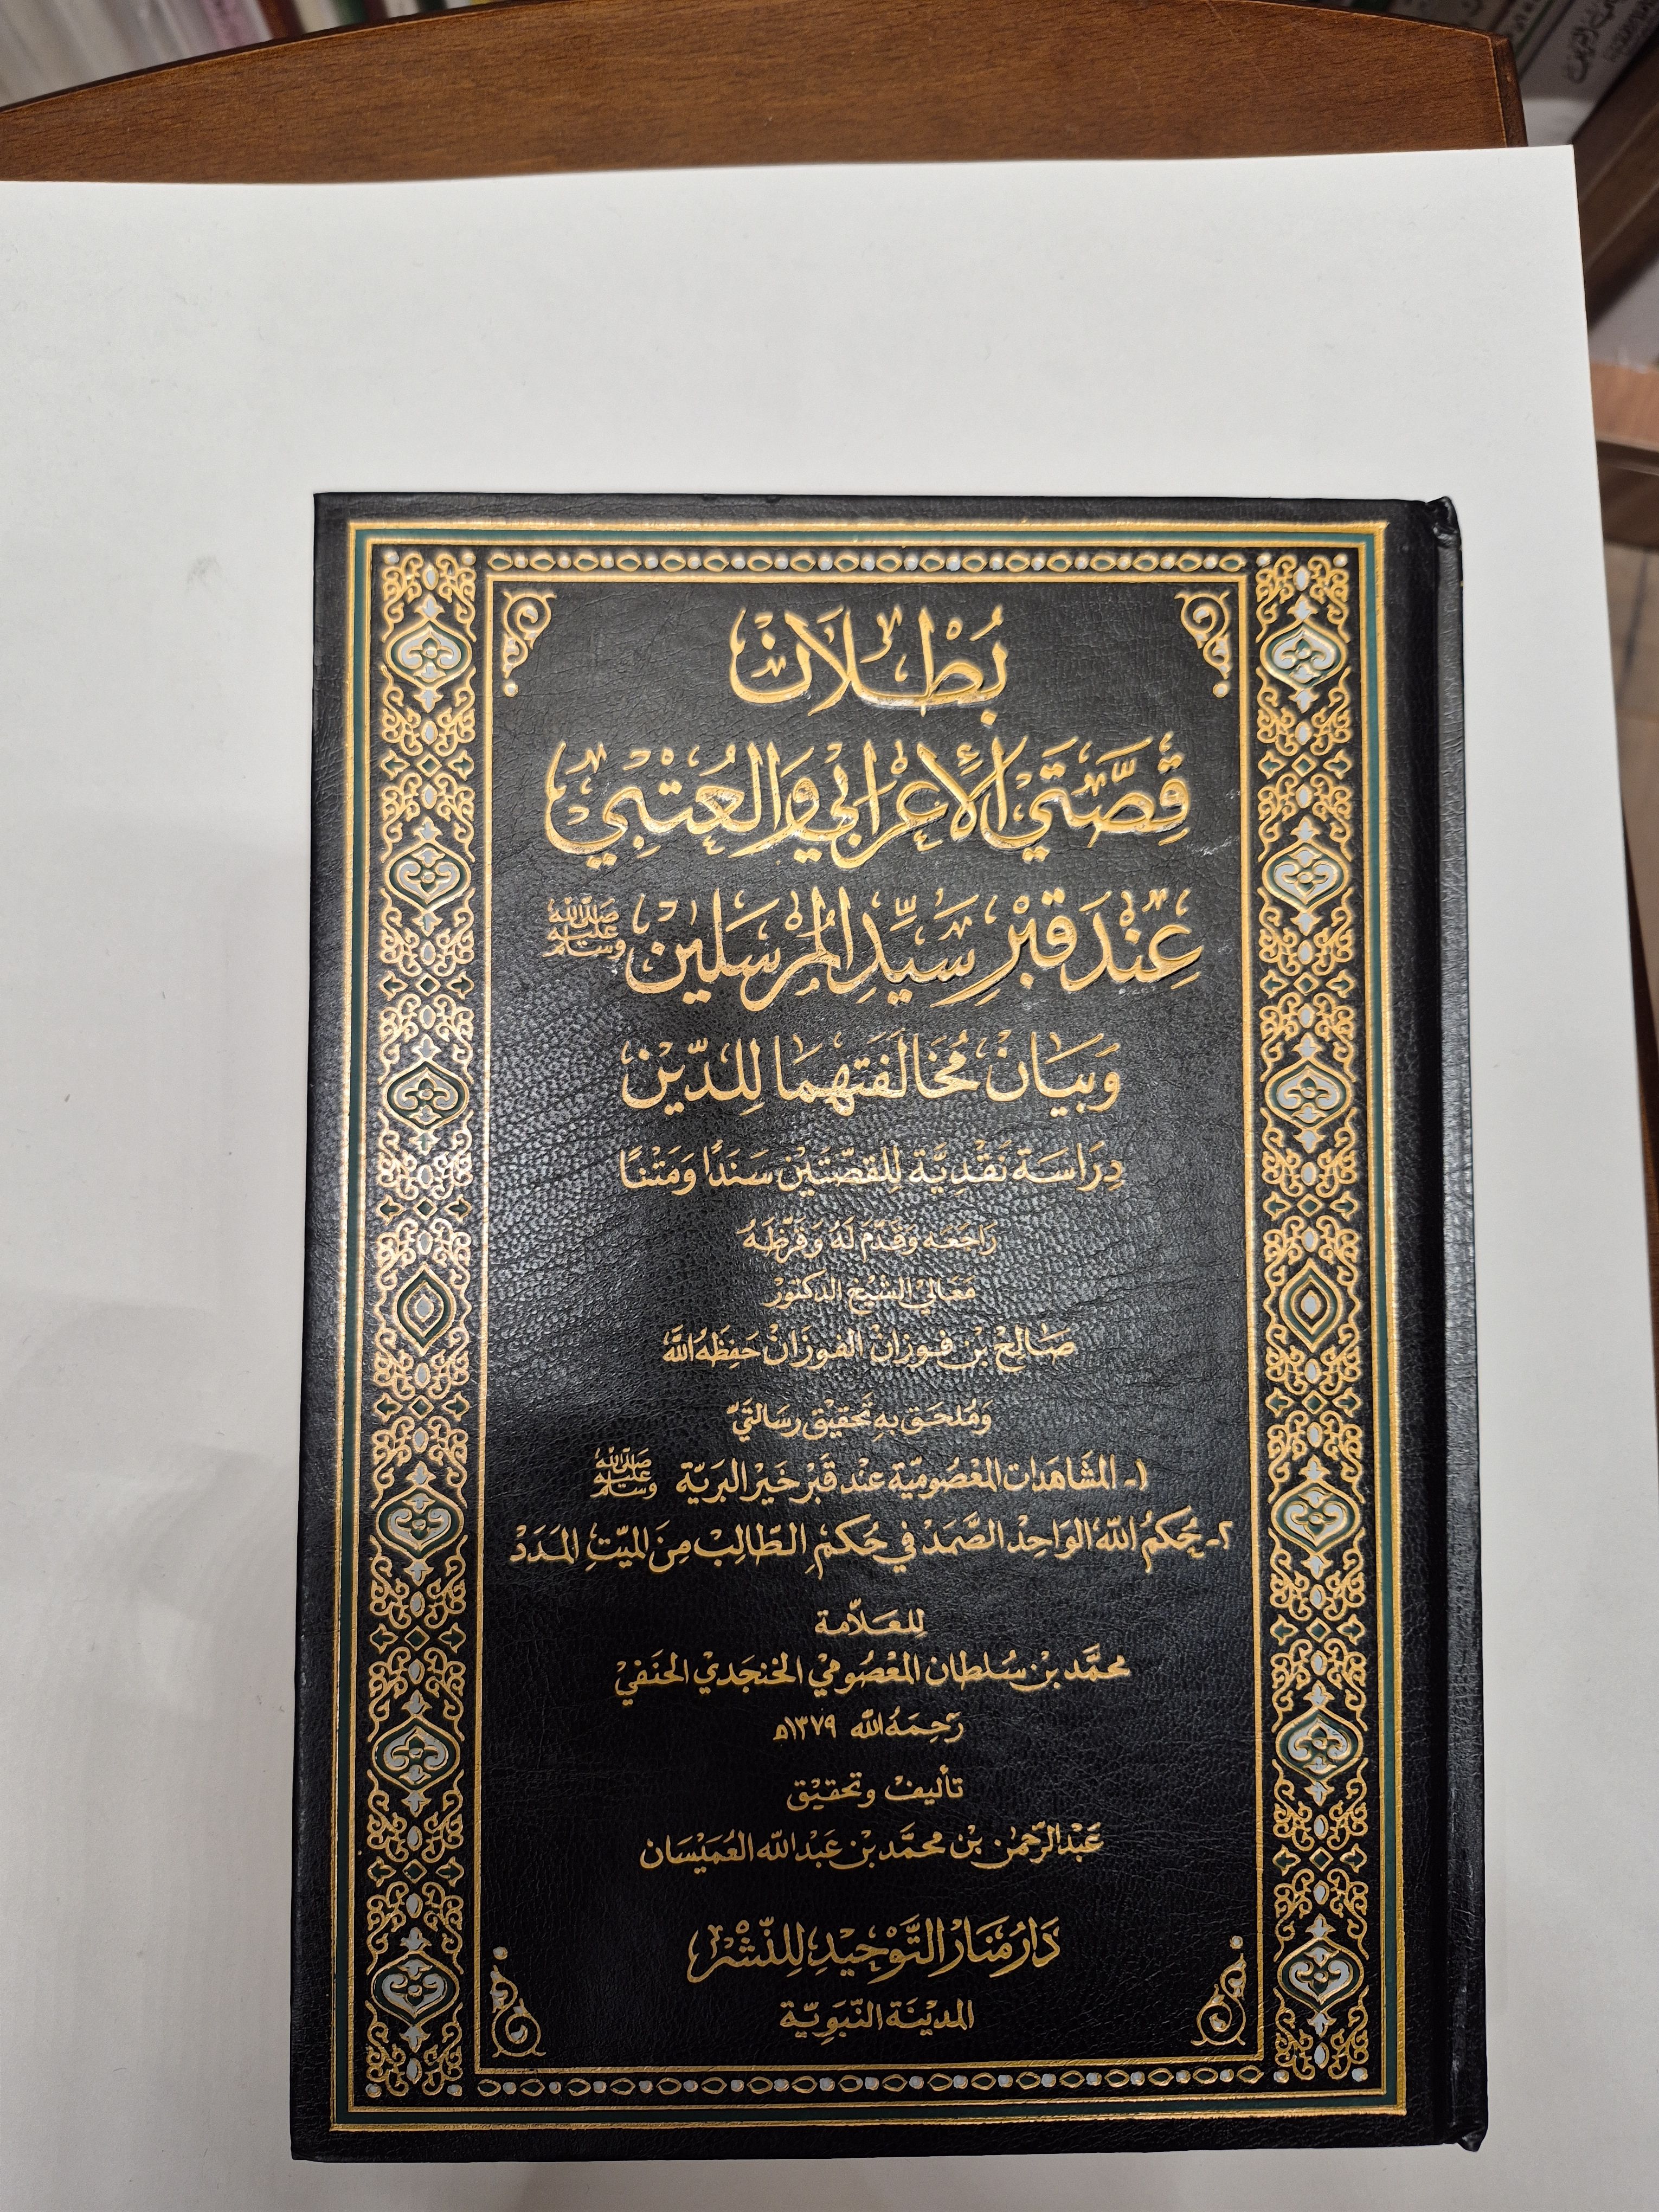 بُطْلَان
قِصَّتَيِ الْأَعْرَابِيِّ وَالْعُتْبِيِّ
عِنْدَ قَبْرِ سَيِّدِ الْمُرْسَلِينَ صَلَّى اللَّهُ عَلَيْهِ وَسَلَّمَ
وَبَيَانُ مُخَالَفَتِهِمَا لِلدِّينِ
دِرَاسَةٌ نَقْدِيَّةٌ لِلقِصَّتَيْنِ سَنَدًا وَمَتْنًا
رَاجَعَهُ وَقَدَّمَ لَهُ وَقَرَّظَهُ
مَعَالِي الشَّيْخِ الدكتُورْ
صَالِحُ بْنُ فَوزَانَ الفَوزَانْ حَفِظَهُ اللَّهُ
وَمُلحَق بِهِ تَحقِيق رِسَالَتَيْ
١- المُشَاهَدَات المَعْصُومِيَّة عِنْدَ قَبْرِ خَيْرِ البَرِيَّة صَلَّى اللَّهُ عَلَيْهِ وَسَلَّمَ
٢- حُكمُ اللَّهِ الوَاحِدِ الصَّمَدْ فِي حُكمِ الطَّالِبْ مِنَ المَيِّتِ المَدَدْ
لِلعَلَّامَة
مُحمَّد بْن سُلطَان المَعْصُومِيّ الخُجَنْدِيّ الحَنَفِيّ
رَحِمَهُ اللَّهُ ١٣٧٩هـ
تَأليف وَتحقيْق
عَبْدُ الرَّحْمٰن بْن مُحَمَّد بْن عَبْدِ اللَّه العُمَيْسَان
دَارُ مَنَارِ التَّوْحِيدِ لِلنَّشْرِ
المَدينَة النَّبَوِيَّة